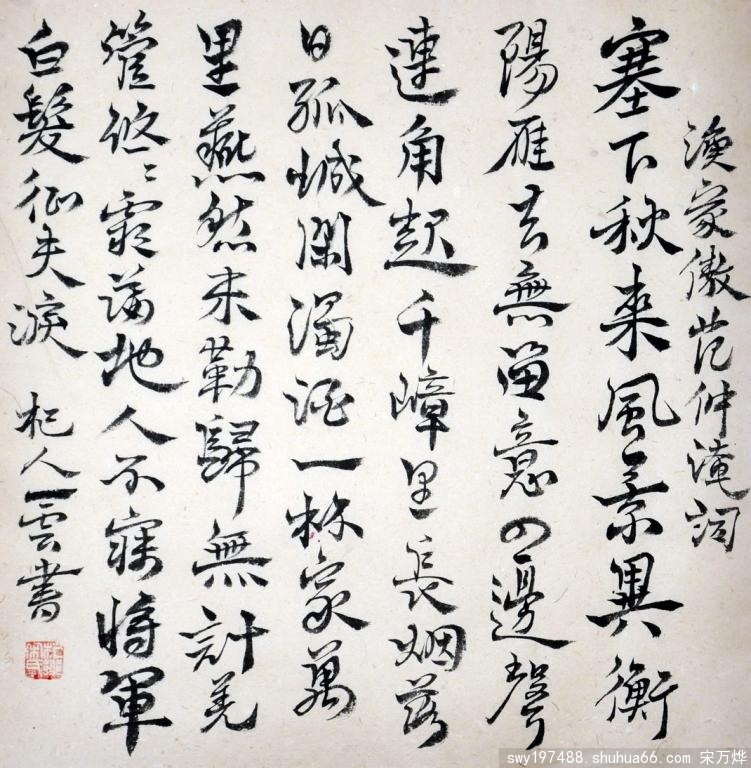 漁家傲范仲淹詞
塞下秋来風景異衡
陽雁去無留意四邊聲
連角起千嶂里長烟落
日孤城閉濁酒一杯家萬
里燕然未勒歸無計羌
管悠〻霜滿地人不寐将軍
白髮征夫淚 杞人一雲書
swy197488.shuhua66.com 宋万烨